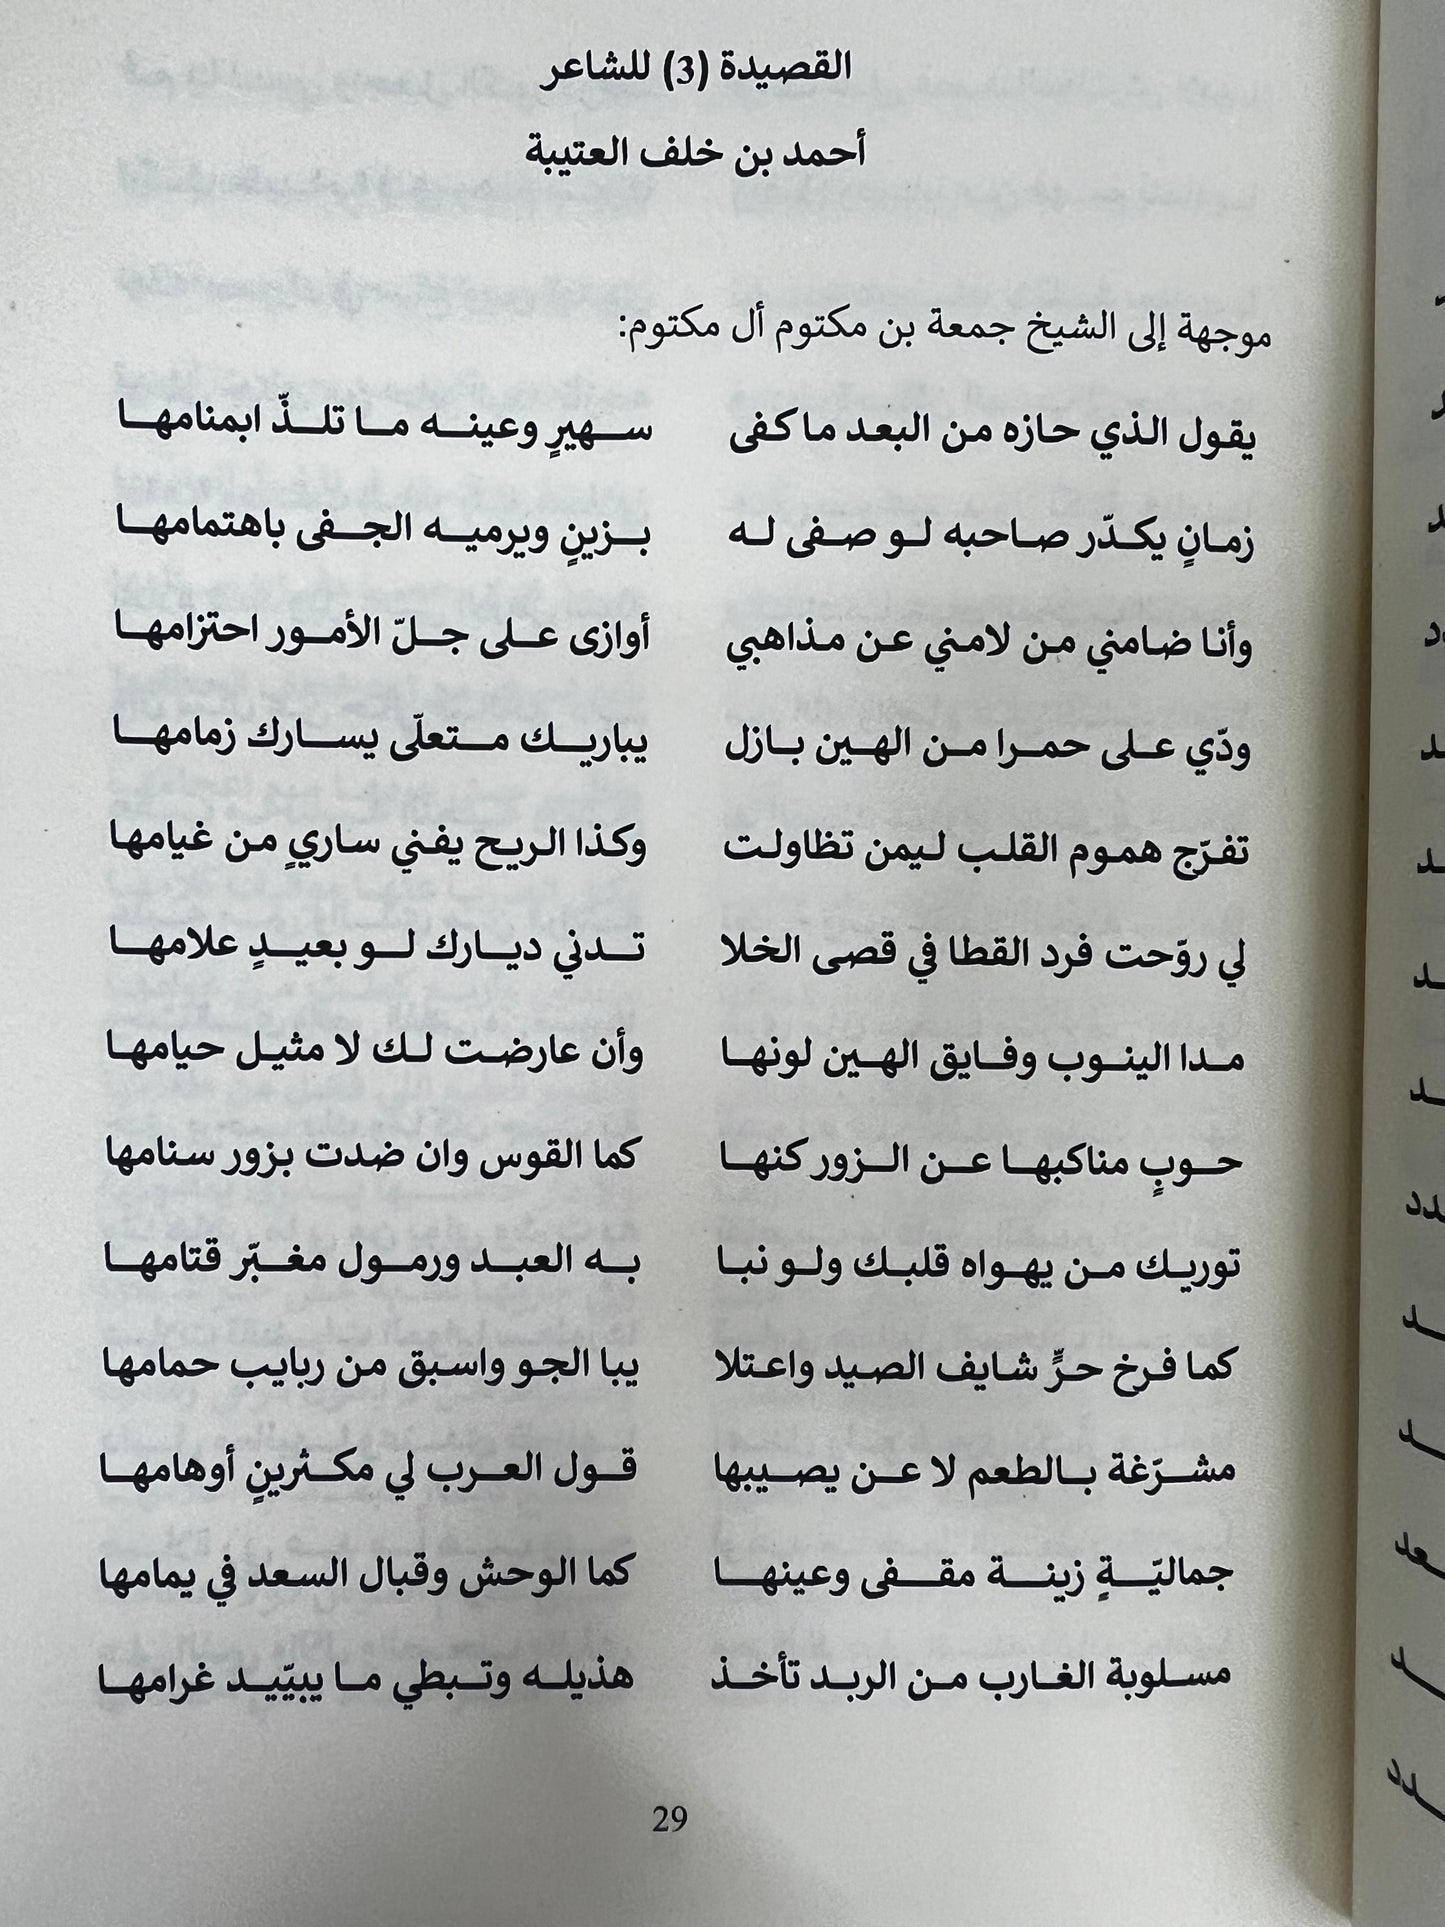 القصيدة (3) للشاعر
أحمد بن خلف العتيبة
موجهة إلى الشيخ جمعة بن مكتوم أل مكتوم:
يقول الذي حازه من البعد ما كفى سهيرٍ وعينه ما تلذّ ابمنامها
زمانٍ يكدّر صاحبه لو صفى له بزينٍ ويرميه الجفى باهتمامها
وأنا ضامني من لامني عن مذاهبي أوازى على جلّ الأمور احتزامها
ودّي على حمرا من الهين بازل يباريك متعلّى يسارك زمامها
تفرّج هموم القلب ليمن تظاولت وكذا الريح يفني ساريٍ من غيامها
لي روّحت فرد القطا في قصى الخلا تدني ديارك لو بعيدٍ علامها
مدا الينوب وفايق الهين لونها وأن عارضت لك لا مثيل حيامها
حوبٍ مناكبها عن الزور كنها كما القوس وان ضدت بزور سنامها
توريك من يهواه قلبك ولو نبا به العبد ورمول مغبّر قتامها
كما فرخ حرٍّ شايف الصيد واعتلا يبا الجو واسبق من ربايب حمامها
مشرّغة بالطعم لا عن يصيبها قول العرب لي مكثرينٍ أوهامها
جماليّةٍ زينة مقفى وعينها كما الوحش وقبال السعد في يمامها
مسلوبة الغارب من الربد تأخذ هذيله وتبطي ما يبيّيد غرامها
29